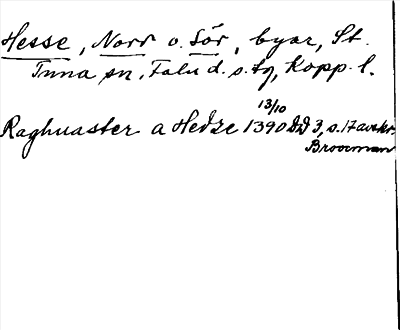 Hesse, Norr o. Sör, byar, St.
Tuna sn, Falu d. s. tg, Kopp. l.
13/10
Raghuaster a Hedze 1390 DD 3, s. 17 avskr.
Brooman